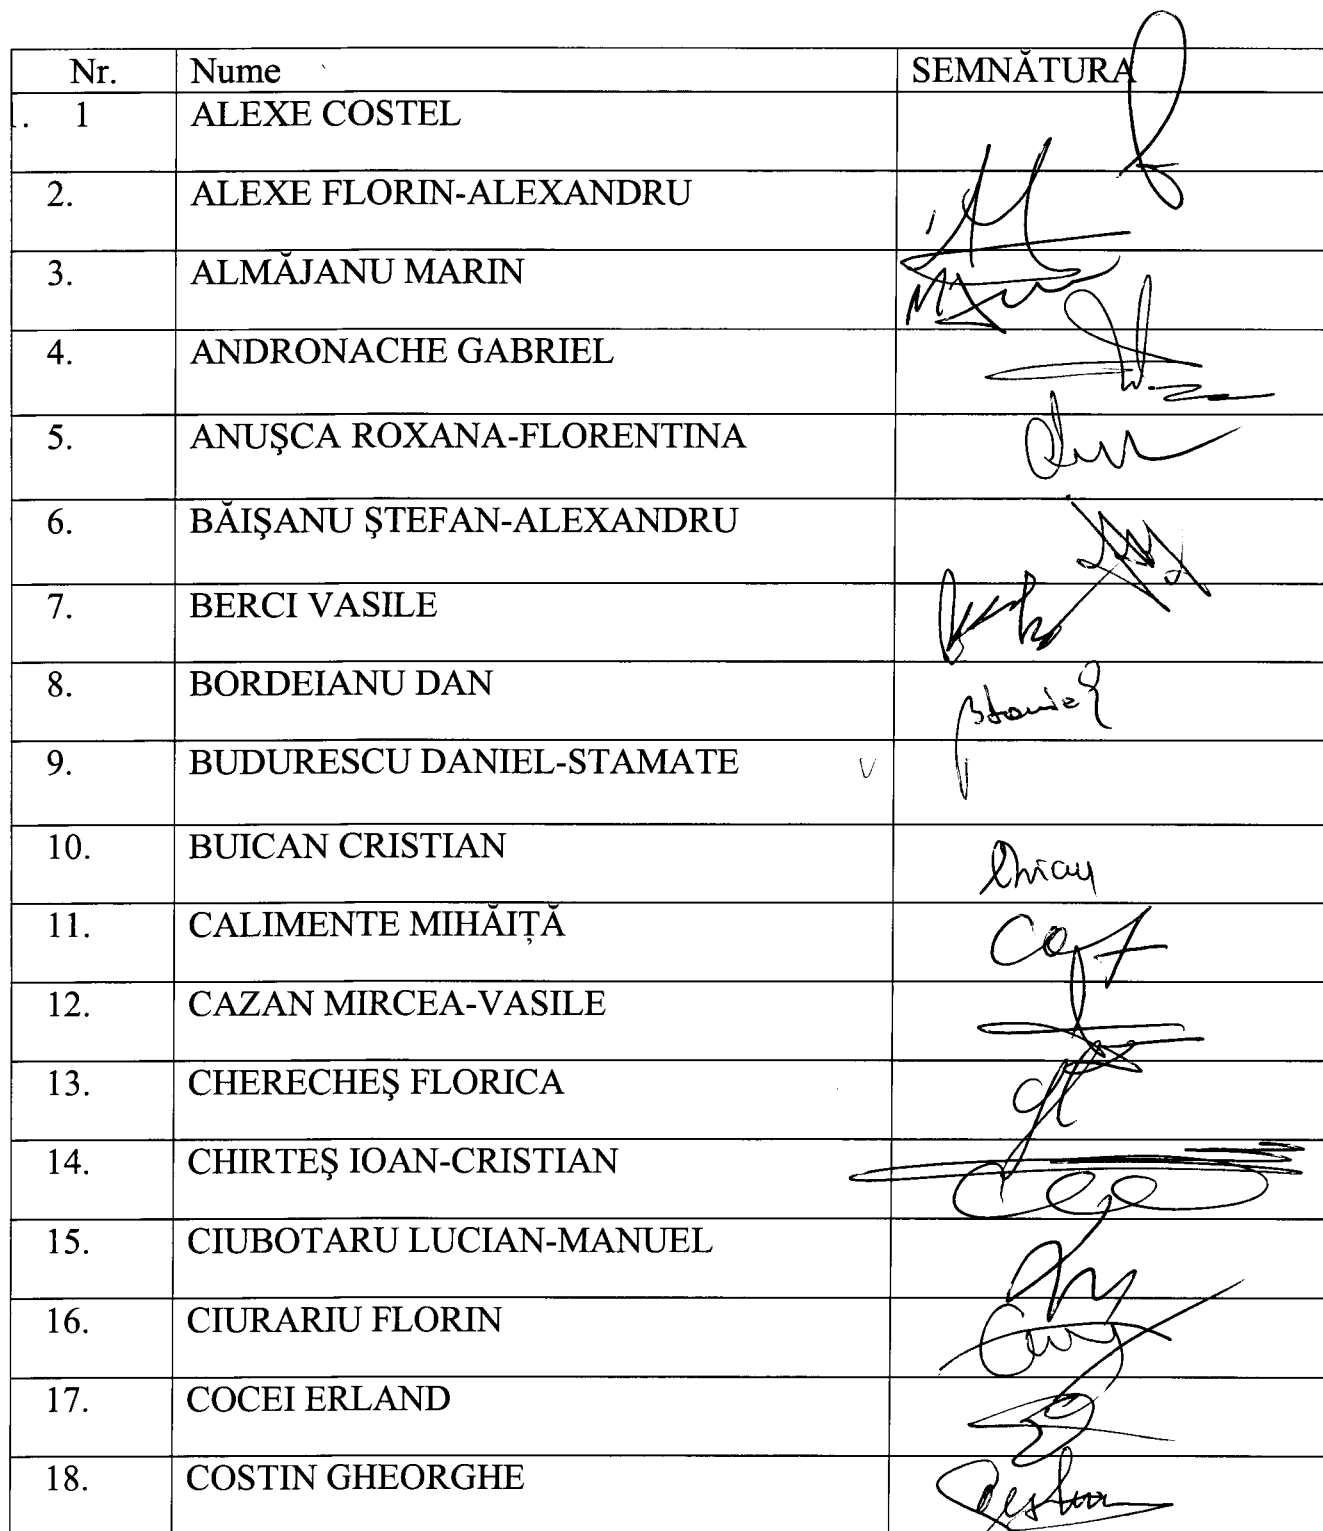 Nr. Nume SEMNĂTURA
1 ALEXE COSTEL
2. ALEXE FLORIN-ALEXANDRU
3. ALMĂJANU MARIN
4. ANDRONACHE GABRIEL
5. ANUŞCA ROXANA-FLORENTINA
6. BĂIŞANU ŞTEFAN-ALEXANDRU
7. BERCI VASILE
8. BORDEIANU DAN
9. BUDURESCU DANIEL-STAMATE
10. BUICAN CRISTIAN
11. CALIMENTE MIHĂIŢĂ
12. CAZAN MIRCEA-VASILE
13. CHERECHEŞ FLORICA
14. CHIRTEŞ IOAN-CRISTIAN
15. CIUBOTARU LUCIAN-MANUEL
16. CIURARIU FLORIN
17. COCEI ERLAND
18. COSTIN GHEORGHE